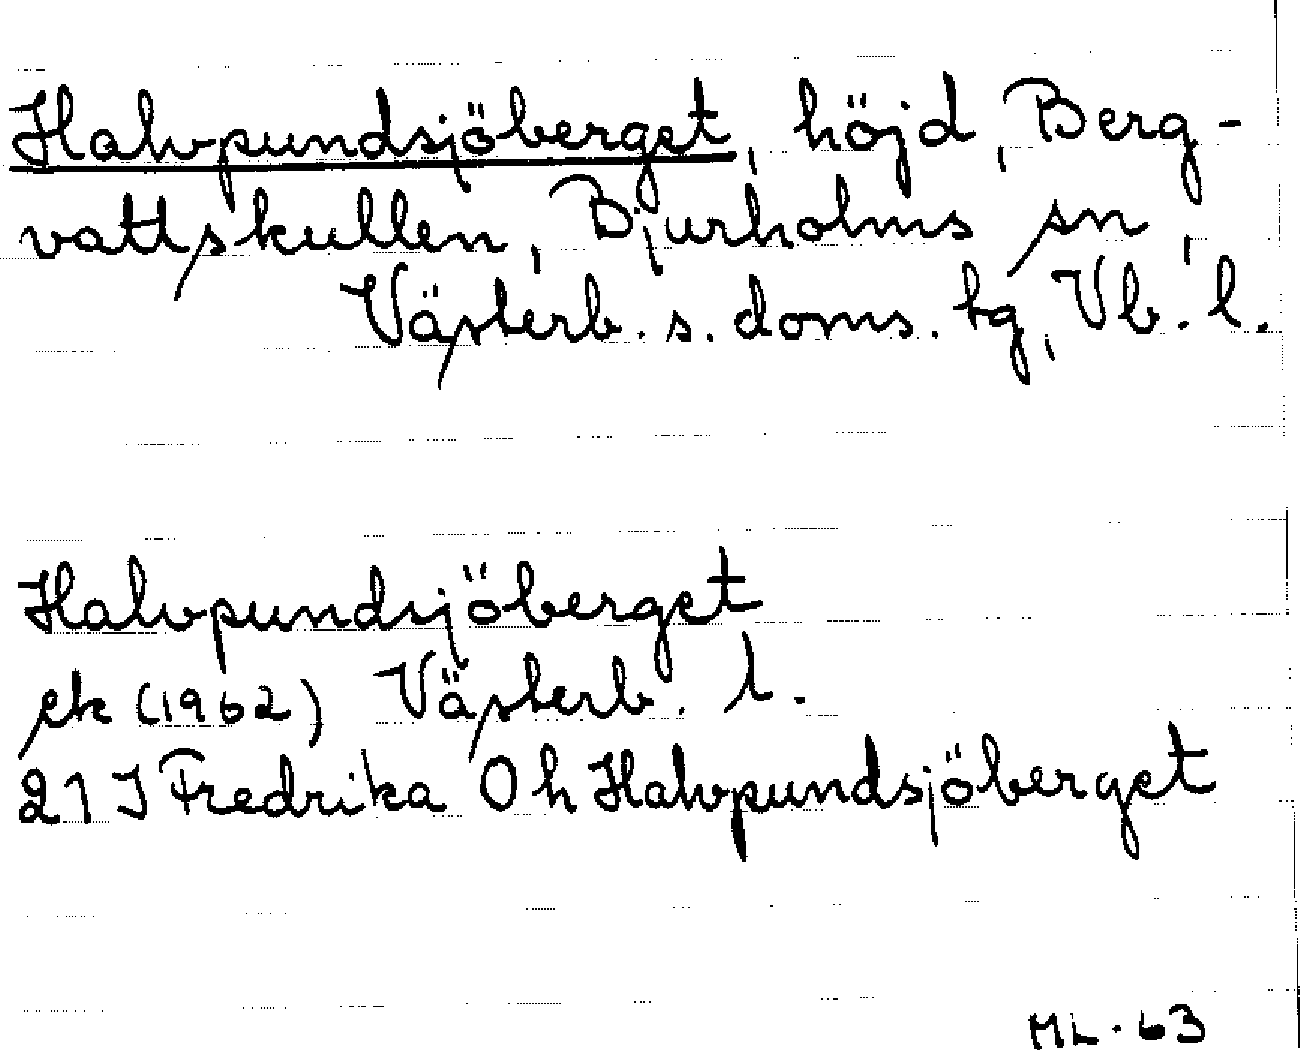 Halvpundsjöberget, höjd, Berg-
vattskullen, Bjurholms sn,
Västerb. s. doms. tg, Vb. l.
Halvpundsjöberget
ek (1962) Västerb. l.
21 J Fredrika Oh Halvpundsjöberget
ML. 63